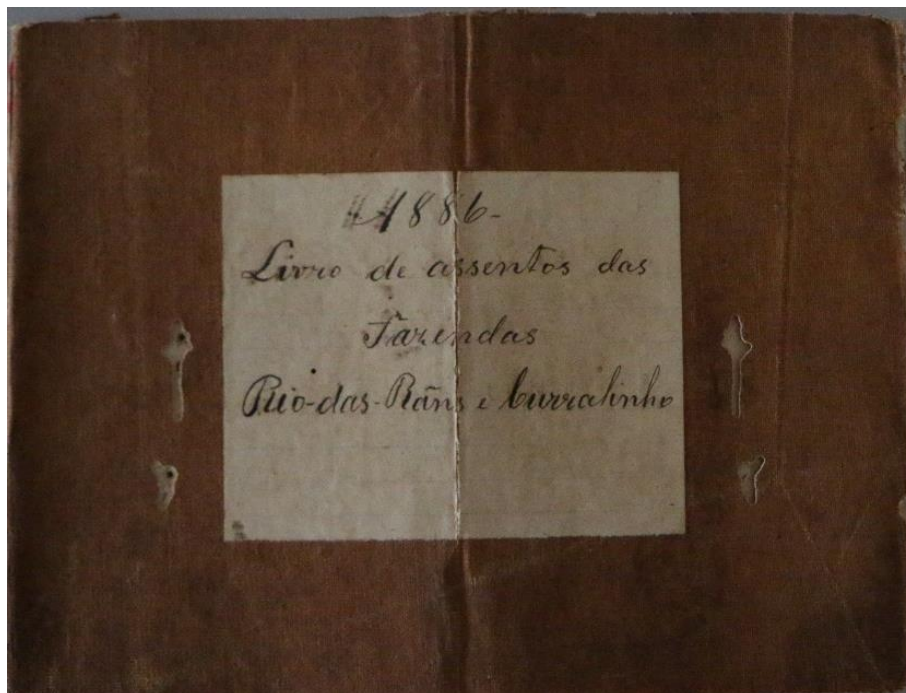 1886-
Livro de assentos das
Fazendas
Rio-das-Rãns e Curralinho